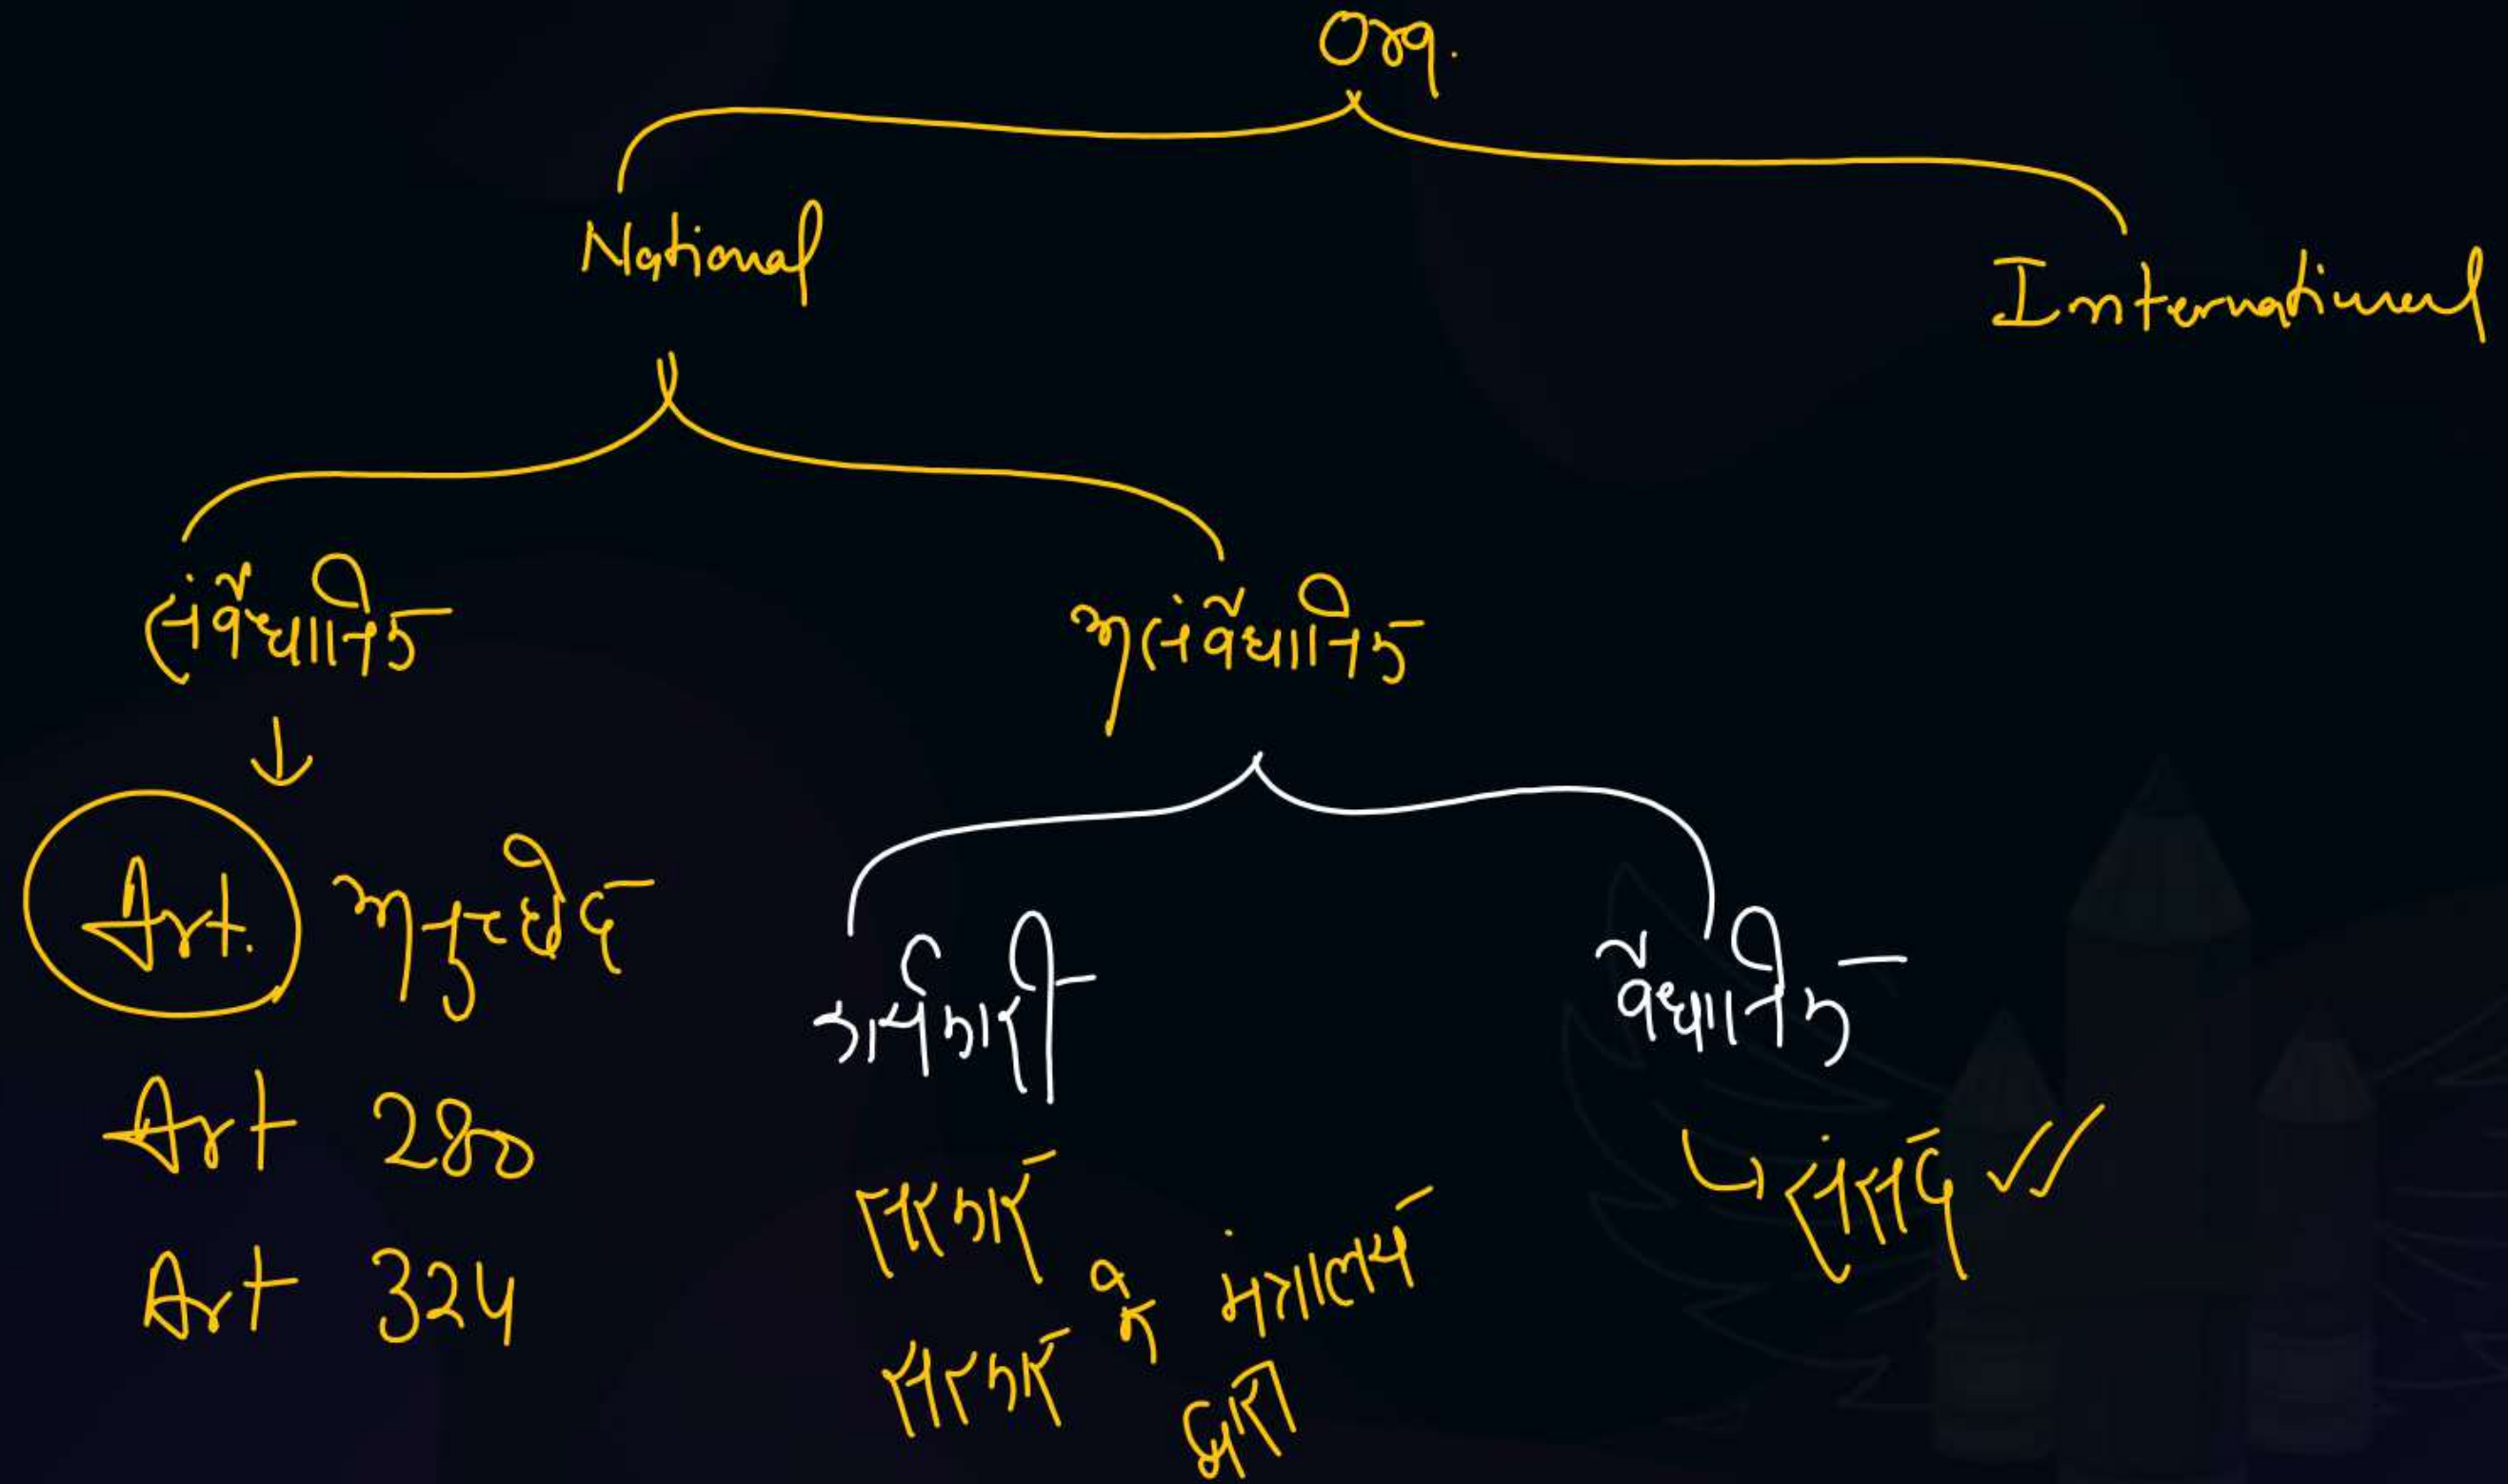 Org.
National
International
संवैधानिक
असंवैधानिक
Art. अनुच्छेद
Art 280
Art 324
कार्यकारी
वैधानिक
सरकार
सरकार के मंत्रालय
द्वारा
संसद